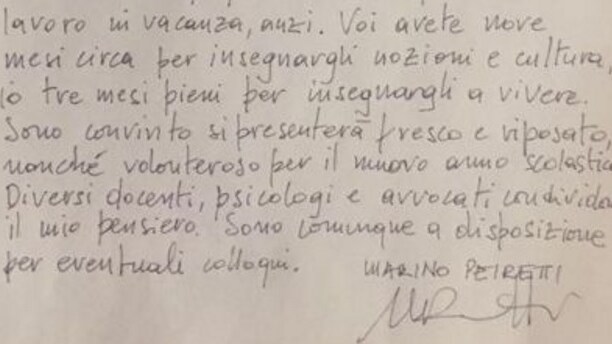 lavoro in vacanza, anzi. Voi avete nove
mesi circa per insegnargli nozioni e cultura,
io tre mesi pieni per insegnargli a vivere.
Sono convinto si presenterà fresco e riposato,
nonché volonteroso per il nuovo anno scolastic
Diversi docenti, psicologi e avvocati condividon
il mio pensiero. Sono comunque a disposizione
per eventuali colloqui. MARINO PEIRETTI